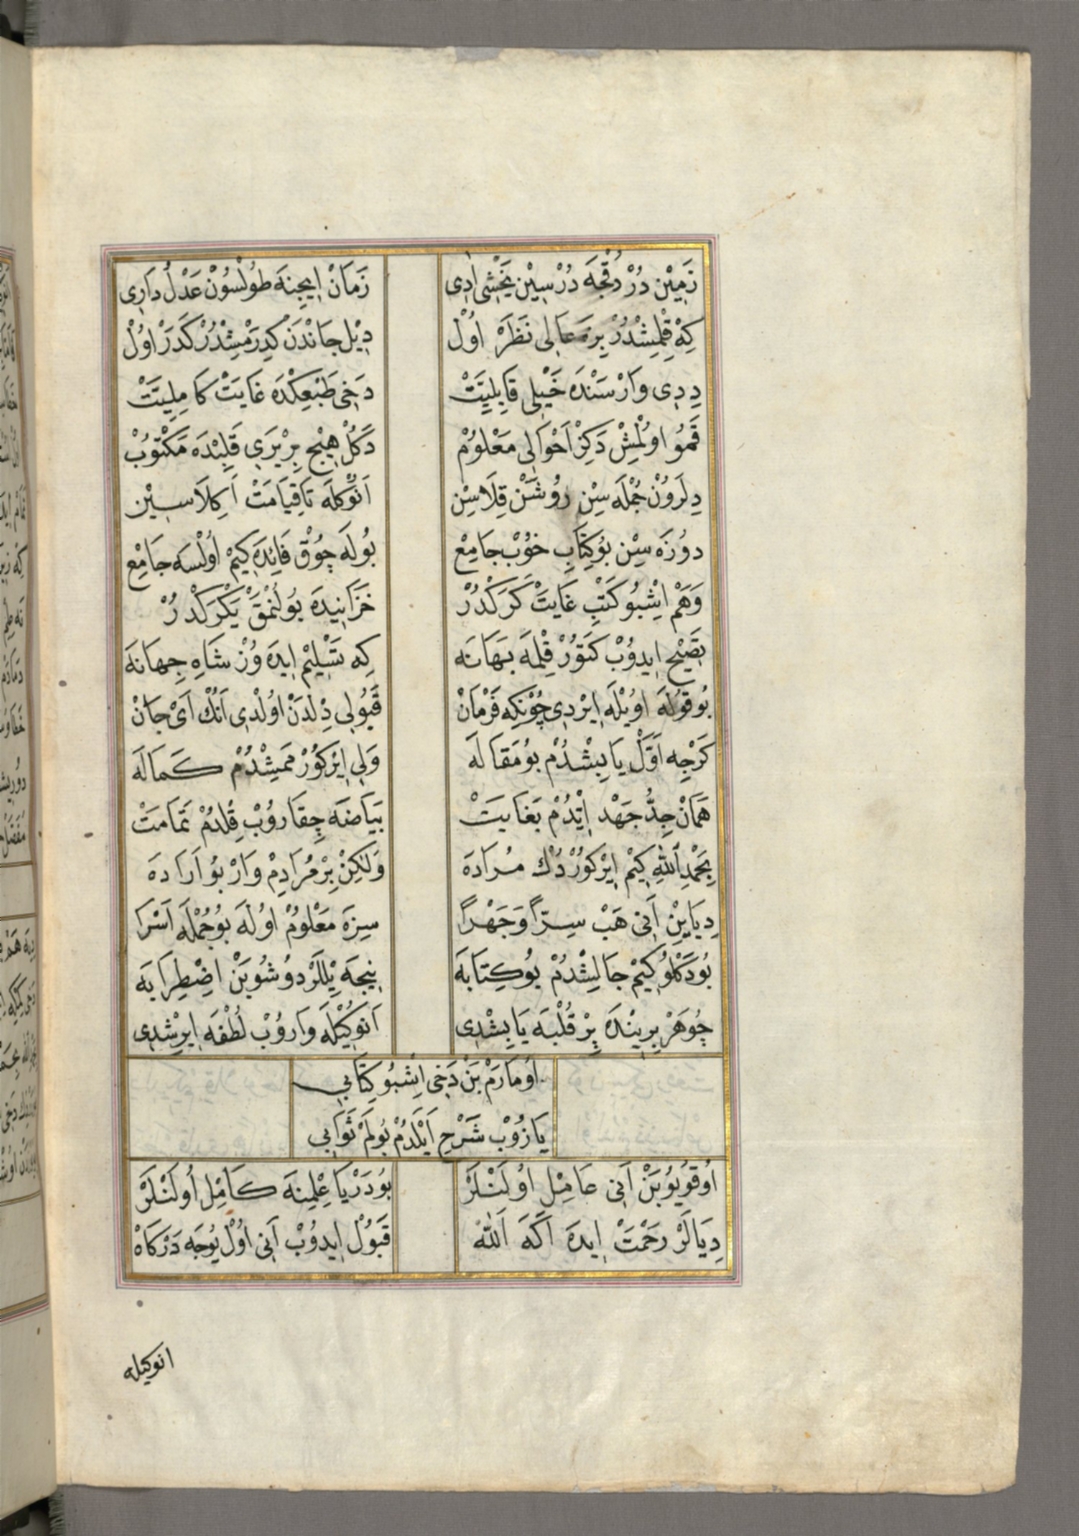 زَمِيْن دُرْ دُقْجَه دُرْسِيْن يَخْشِى اَدِى زَمَانْ اِيچِنَه طُولْسُوْنْ عَدْلُ دَارِى
كِهْ قِلْمِشْدُرْ بِرَه عَالِى نَظَرْ اُوْلْ دِيْل جَانْدَنْ كِدِرْمِشْدُرْ كَدَرْ اُوْلْ
دِدِى وَارْ سَنْدَه خَيْلِى قَابِلِيَّتْ دَخِى طَبْعِكْدَه غَايَتْ كَامِلِيَّتْ
قَمُو اوُلْمِشْ دَكِزْ اَحْوَالِى مَعْلُومْ دَكُلْ هِيْچ بِرْيَرِى قَلِبْدَه مَكْتُوبْ
دِلَرُونْ جُمْلَه سِنْ رُوْشَنْ قِلَاسِنْ اَنُوكِلَه تَا قِيَامَتْ اَكِلَاسِيْن
دُورَه سِنْ بُوكِتَابِ خُوْبْ جَامِعْ بُولَه چُوْقْ فَائِدَه كِيْمْ اُولْسَه جَامِعْ
وَهَمْ اِشْبُو كُتُبْ غَايَتْ كَرَكْدُرْ خَزَانِيدَه بُولُنْمَقْ يَكْرَكْدُرْ
تَصْحِيْح اِيدُوْبْ كَتُوْرْ قِلْمَه بَهَانَه كِه تَسْلِيْم اِيدَه وُزْ شَاهِ جِهَانَه
بُو قَوْلَه اوُيْلَه اِيرْدِى چُوْنكِه فَرْمَانْ قَبُولِى دِلْدَنْ اُولْدِى اَنُكْ اَىْ جَانْ
كَرْچِه اَوَّلْ يَا بِشْدُمْ بُو مَقَالَه وَلِى اِيْركُوْرْمَمِشْدُمْ كَمَالَه
هَمَانْ جِدُّ جَهْد اِيْتْدُمْ بَغَايَتْ بَيَاضَه چِقَارُوْبْ قِلْدُمْ تَمَامَتْ
بِحَمْدِ اللّٰهِ كِيْم اِيْركُوْرْدُكْ مُرَادَه وَلٰكِنْ بِرْ مُرَادِمْ وَارْ بُو آرَادَه
دِيَايِنْ اَنِى هَبْ سِرّاً وَجَهْراً سِزَه مَعْلُومْ اوُلَه بُو جُمْلَه اَسْرَا
بُو دَكْلُو كِيْمْ چَالِشْدُمْ بُو كِتَابَه نِيجَه يِيْللَرْ دُوشُوبَنْ اِضْطِرَابَه
چُوهَرْ بِرِيْنْدَه بِرْ قُلْبَه يَا بِشْدِى اَنُوكِيْلَه وَارُوْبْ لُطْفَه اِيرْشْدِى
اُومَارَمْ بَنْ دَخِى اِشْبُو كِتَابِى
يَازُوْبْ شَرْحِ اَيْلَدُمْ بُولَمْ ثَوَابِى
اُوقُويُوبَنْ اَنِى عَامِلْ اُولَنْلَرْ بُو دَرْيَا عِلْمِنَه كَامِلْ اُولَنْلَرْ
دِيَالَرْ رَحْمَتْ اِيدَه اَكَه اَللّٰه قَبُوْلْ اِيدُوْبْ اَنِى اُوْلْ يُوجَه دَرْكَاهْ
انوكيله